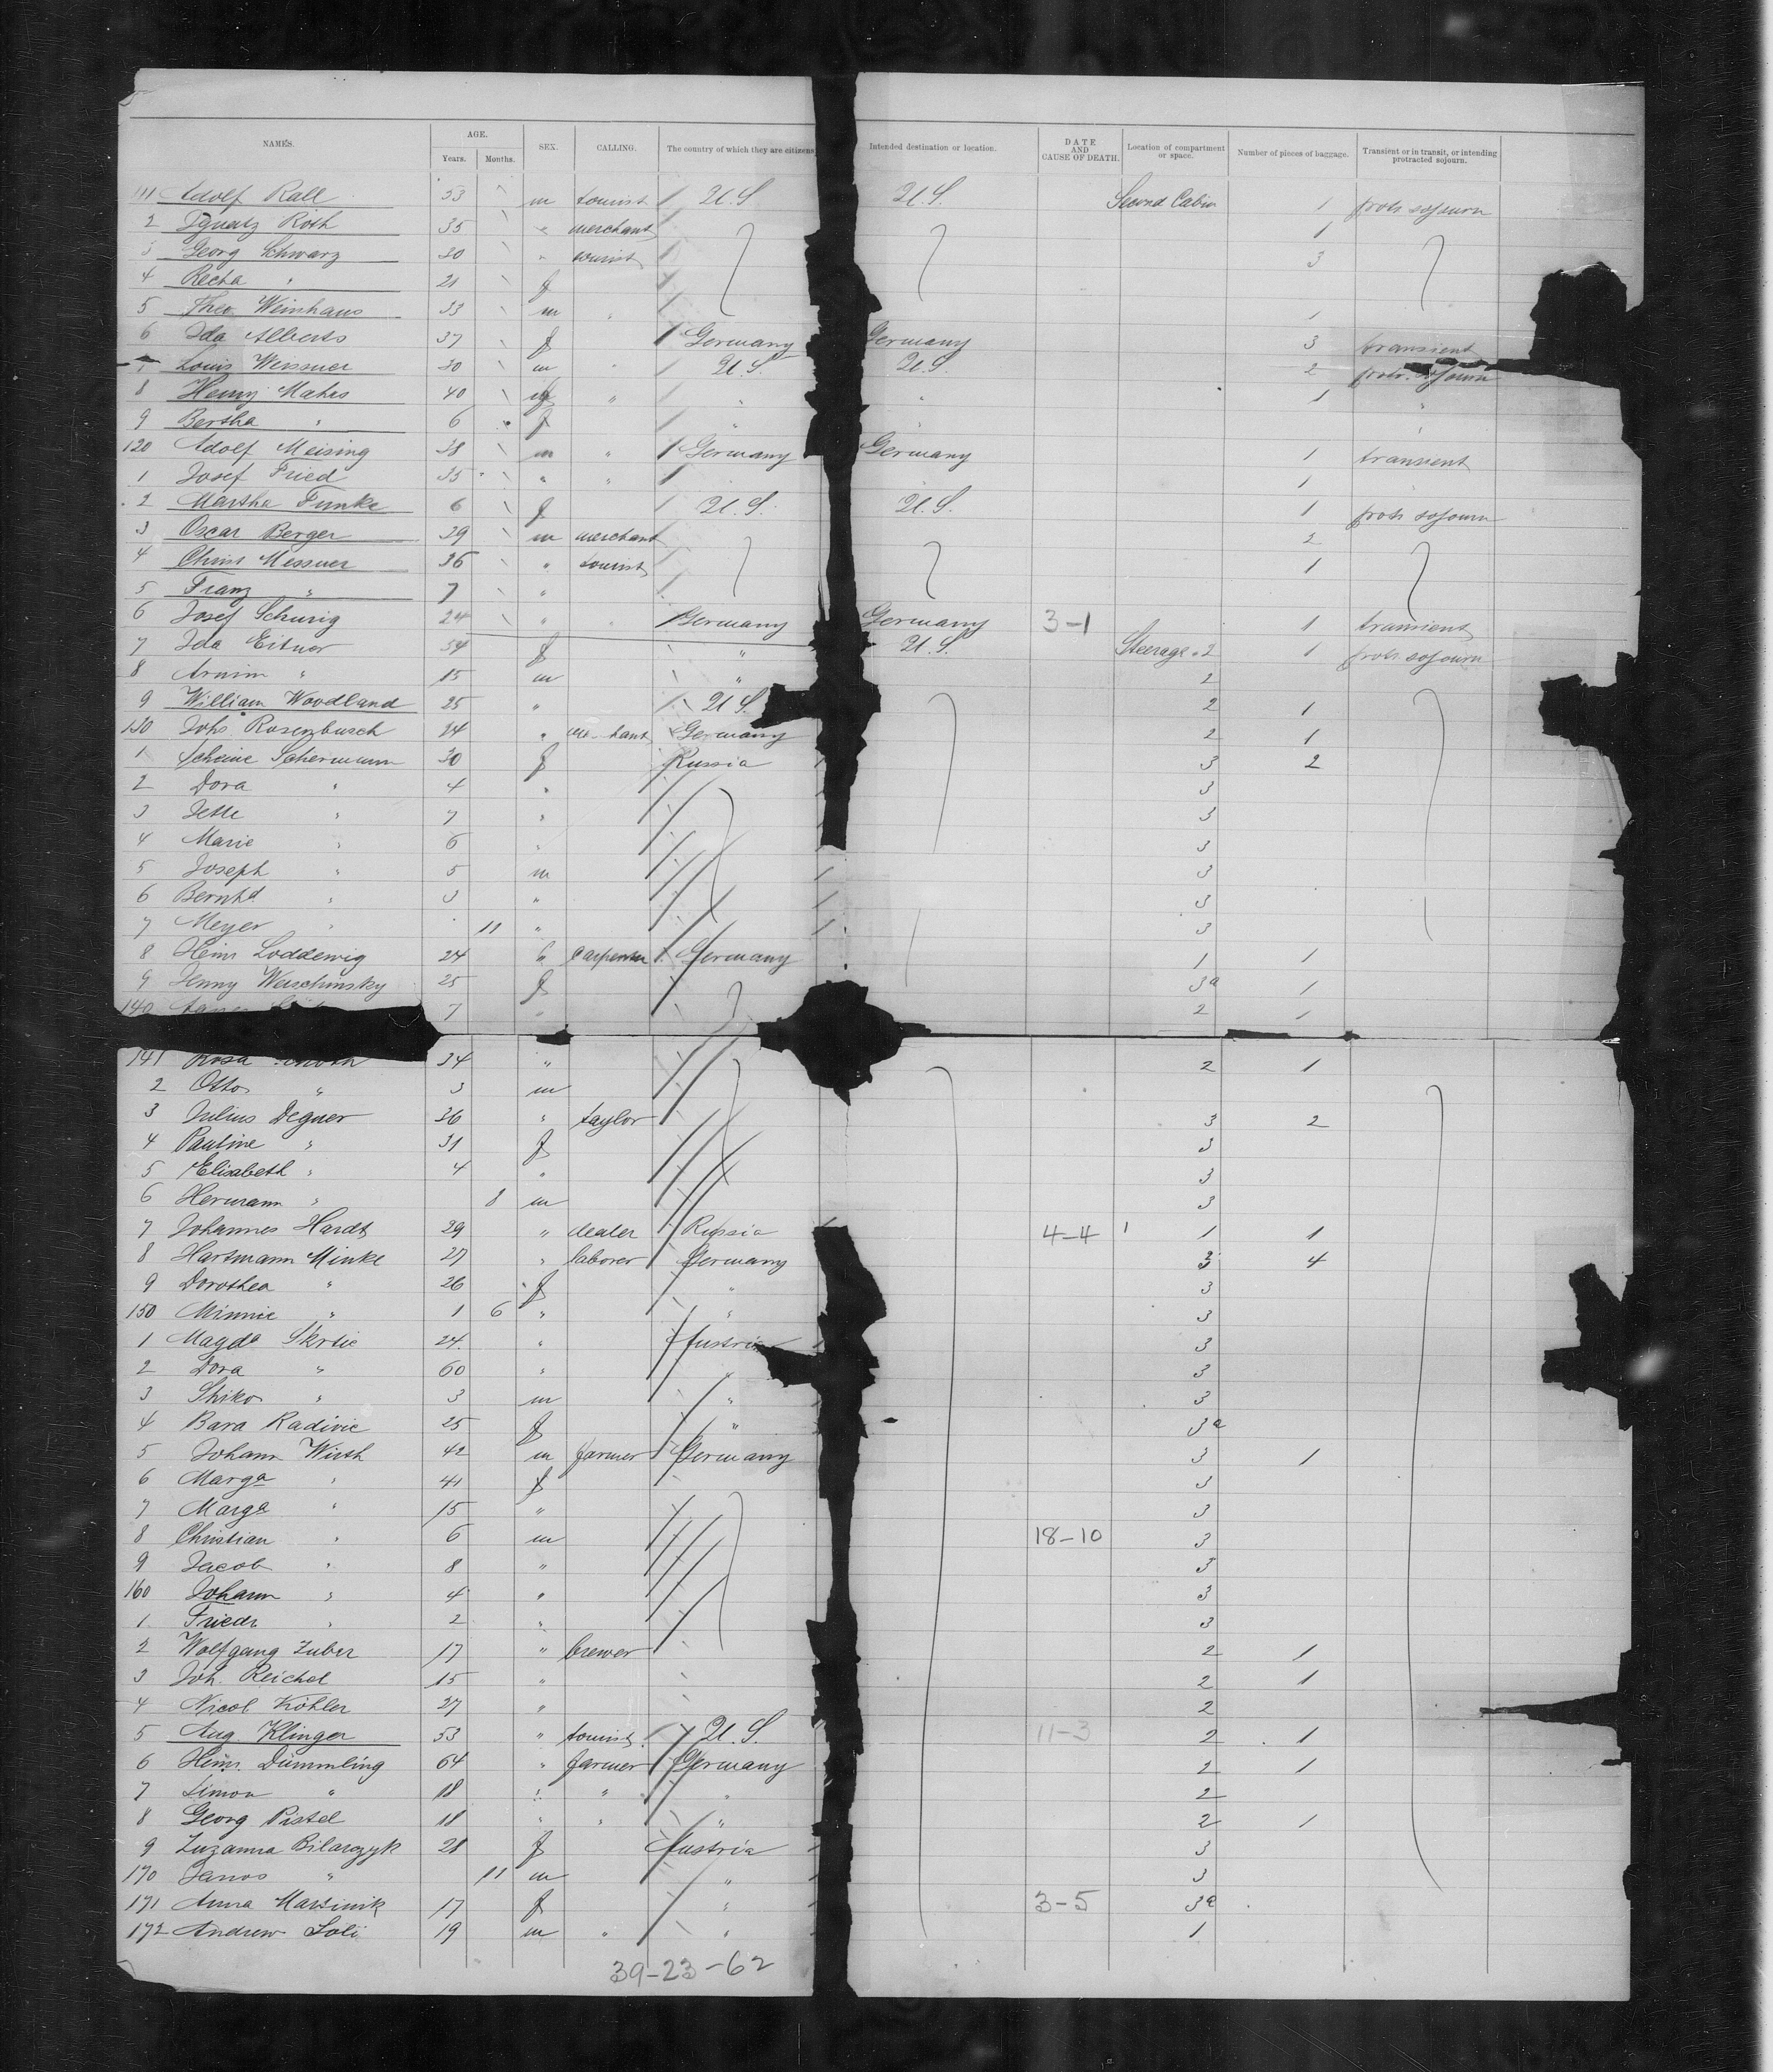 NAMES. AGE. SEX. CALLING. The country of which they are citizens Intended destination or location. DATE AND CAUSE OF DEATH. Location of compartment or space. Number of pieces of baggage. Transient or in transit, or intending protracted sojourn.
Years. Months.
111 Adolf Rall 53 m tourist U.S. U.S. Second Cabin 1 protr sojourn
2 Ignatz Roth 35 " merchant 1
3 Georg Schwarz 30 " tourist 3
4 Recha " 21 f
5 Theo Weinhaus 33 m " 1
6 Ida Alberts 37 f Germany Germany 3 transient
7 Louis Weissner 30 m " U.S. U.S. 2 protr. sojourn
8 Henry Mahes 40 " " " 1 "
9 Bertha " 6 f " " "
120 Adolf Meising 38 m " Germany Germany 1 transient
1 Josef Fried 35 " " 1
2 Martha Funke 6 f U.S. U.S. 1 protr sojourn
3 Oscar Berger 39 m merchant 2
4 Christ Messner 36 " tourist 1
5 Franz " 7 "
6 Josef Schurig 24 " " Germany Germany 3-1 1 transient
7 Ida Eitner 54 f " U.S. Steerage 2 1 protr sojourn
8 Armin " 15 m " 2
9 William Woodland 25 " U.S. 2 1
130 Johs. Rosenbusch 24 " Germany 2 1
1 Scheine Schermann 30 f Russia 3 2
2 Dora " 4 " 3
3 Jette " 7 " 3
4 Marie " 6 " 3
5 Joseph " 5 m 3
6 Bernhd " 3 " 3
7 Meyer " 11 " 3
8 Heinr Loddewig 24 " carpenter Germany 1 1
9 Jenny Weischinsky 25 f 3a 1
140 7 " 2 1
141 Rosa 34 " 2 1
2 Otto " 3 m
3 Julius Degner 36 " taylor 3 2
4 Pauline " 31 f 3
5 Elisabeth " 4 " 3
6 Hermann " 8 m 3
7 Johannes Hardt 29 " dealer Russia 4-4 1 1 1
8 Hartmann Minke 27 " laborer Germany 3 4
9 Dorothea " 26 f " 3
150 Minnie " 1 6 " " 3
1 Magda Skrtic 24 " Austria 3
2 Dora " 60 " " 3
3 Shiko " 3 m " 3
4 Bara Radivic 25 f " 3a
5 Johann Wirth 42 m farmer Germany 3 1
6 Marga " 41 f 3
7 Marga " 15 " 3
8 Christian " 6 m 18-10 3
9 Jacob " 8 " 3
160 Johann " 4 " 3
1 Friedr " 2 " 3
2 Wolfgang Zuber 17 " brewer 2 1
3 Joh. Reichel 15 " 2 1
4 Nicol Köhler 27 " 2
5 Aug. Klinger 53 " tourist U.S. 11-3 2 1
6 Heinr. Dümmling 64 " farmer Germany 2 1
7 Simon " 18 " " " 2
8 Georg Pistel 18 " " " 2 1
9 Zuzanna Bilarczyk 28 f Austria 3
170 Janos " 11 m " 3
171 Anna Marsinik 17 f " 3-5 3a
172 Andrew 19 m " " 1
39-23-62